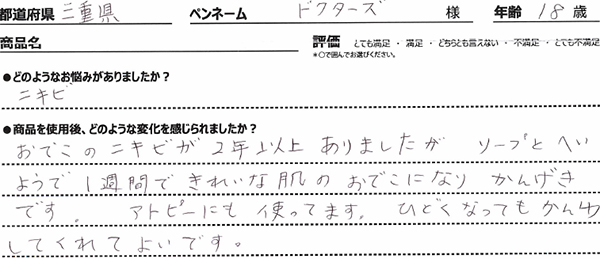 都道府県 三重県 ペンネーム ドクターズ 様 年齢 18 歳
商品名 評価 とても満足 ・ 満足 ・ どちらとも言えない ・ 不満足 ・ とても不満足
*○で囲んでお選びください。
●どのようなお悩みがありましたか？
ニキビ
●商品を使用後、どのような変化を感じられましたか？
おでこのニキビが2年以上ありましたが ソープとへい
ようで1週間できれいな肌のおでこになり かんげき
です。 アトピーにも使ってます。 ひどくなってもかんわ
してくれてよいです。